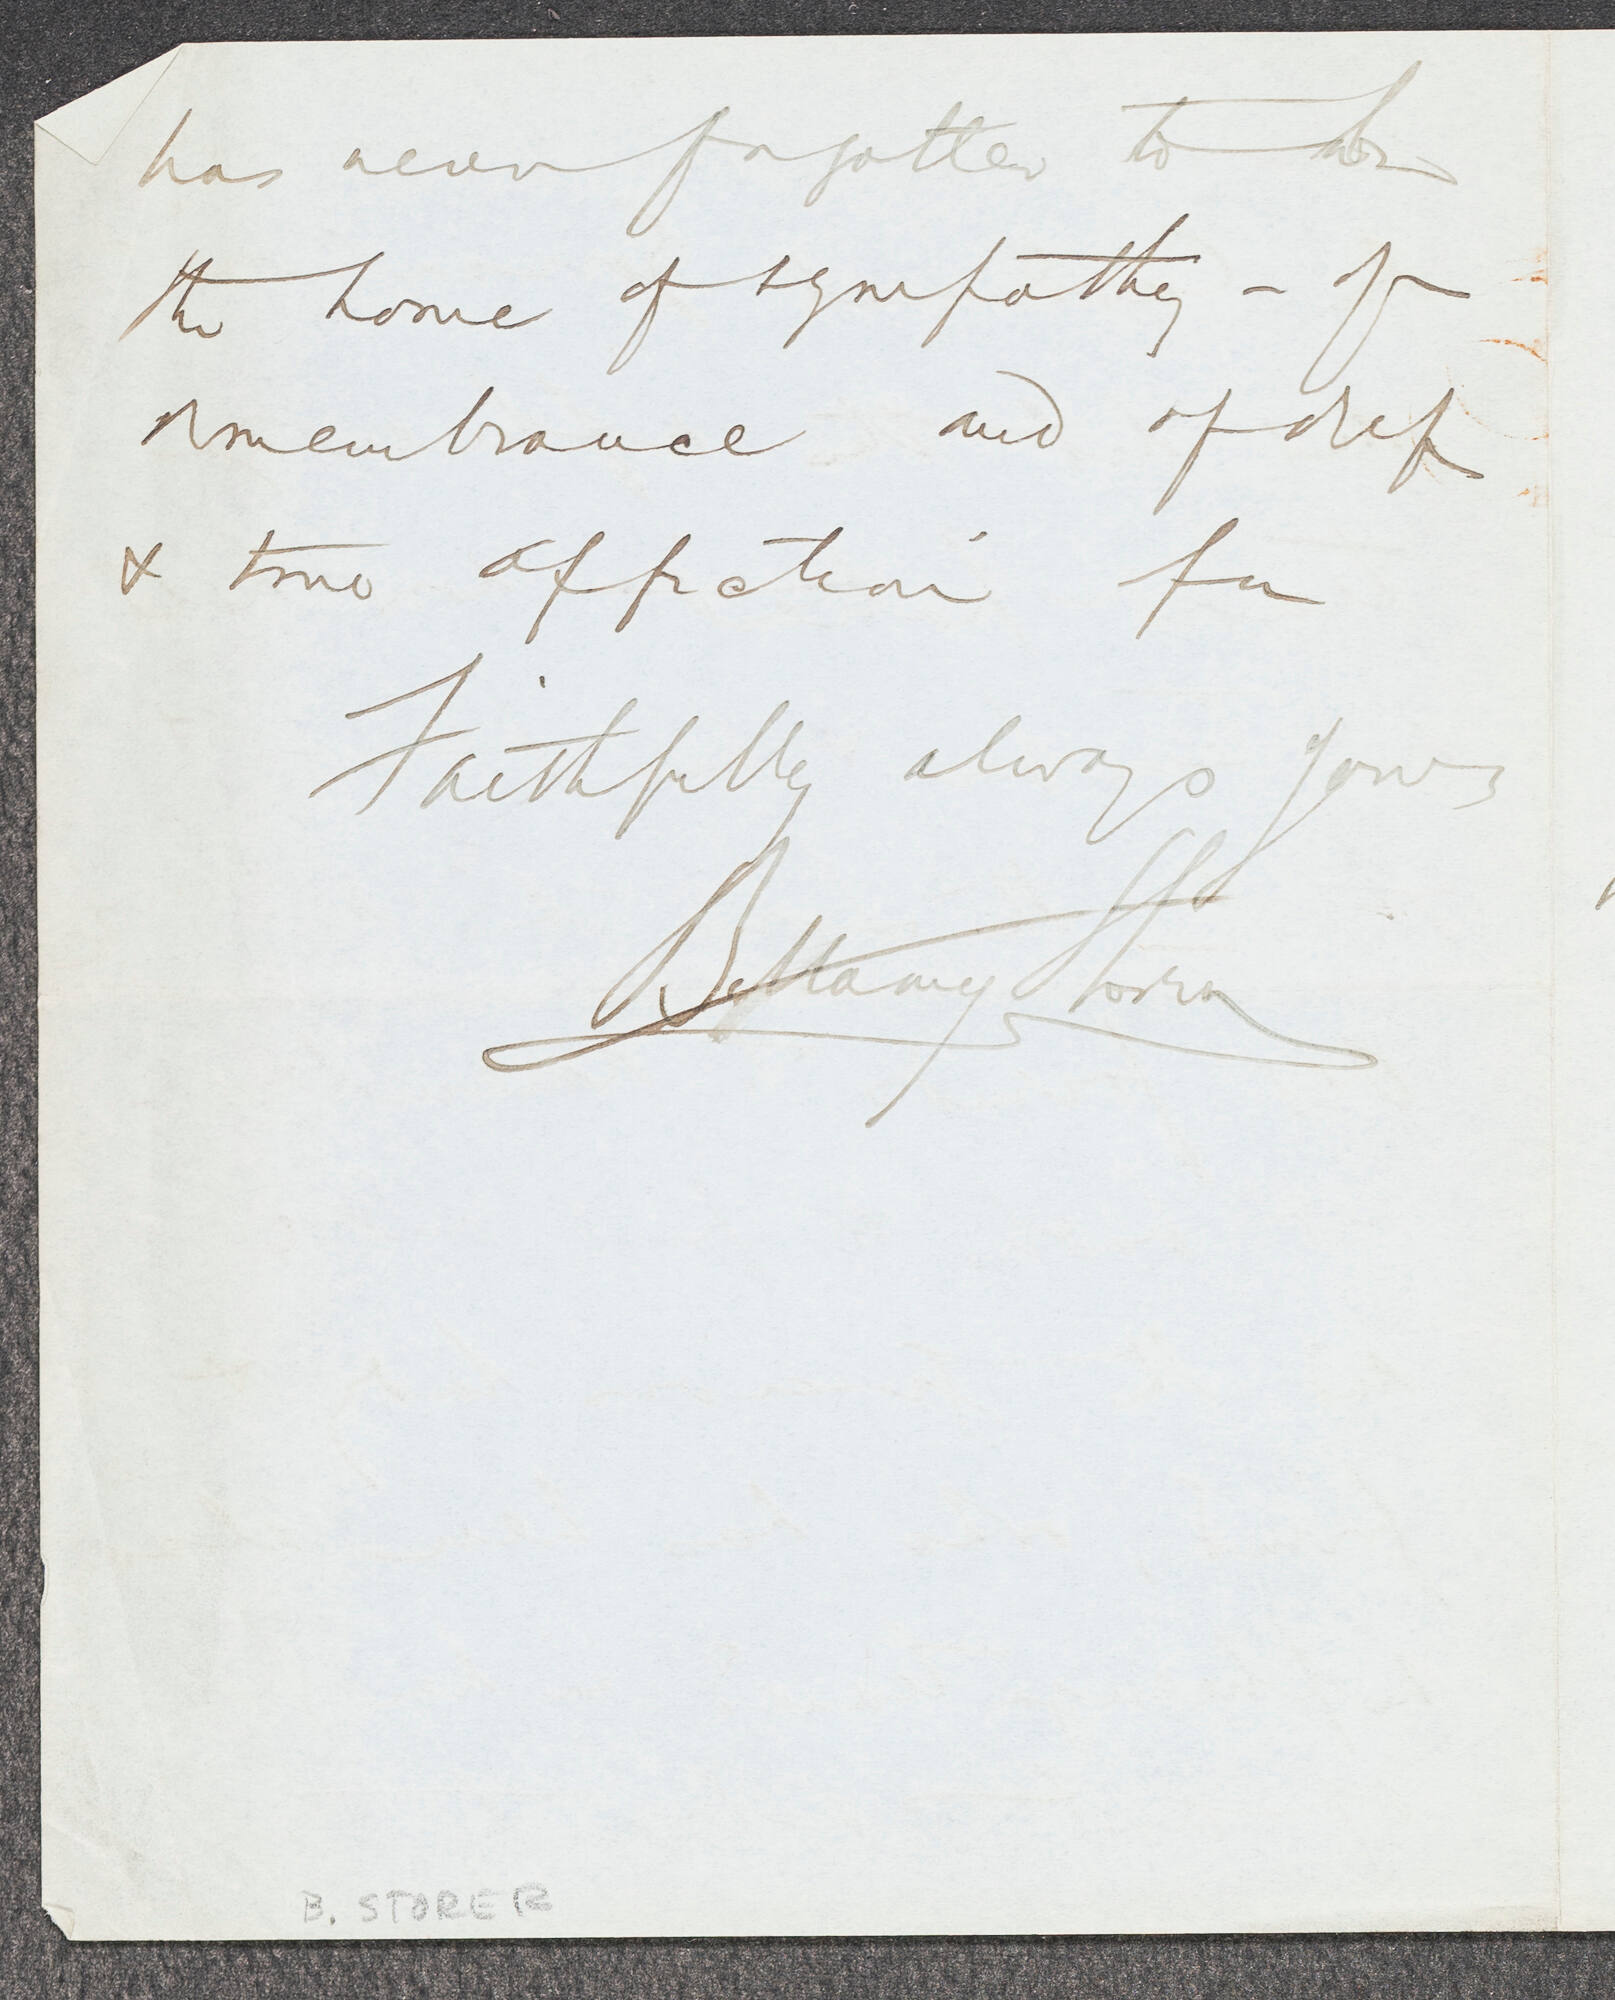 has never forgotten to be
the home of sympathy – of
remembrance and of deep
& true affection for
Faithfully always yours
Bellamy Storer
B. STORER